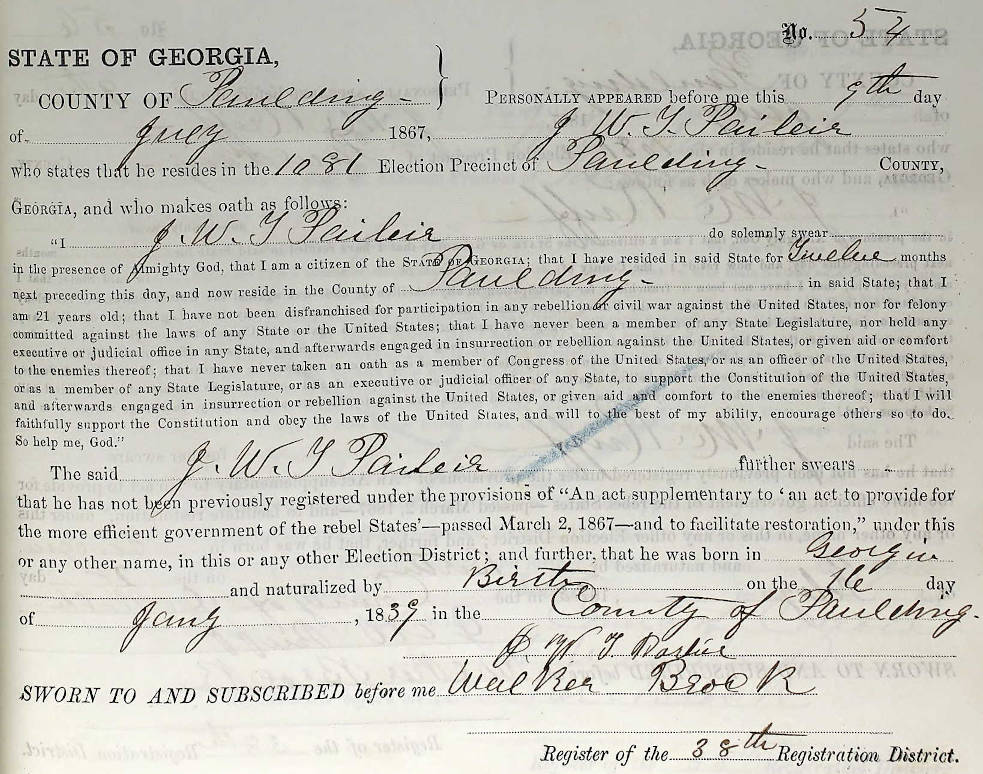 No. 54
STATE OF GEORGIA,
COUNTY OF Paulding
PERSONALLY APPEARED before me this 9th day
of July 1867, J. W. T.
who states that he resides in the 1081 Election Precinct of Paulding COUNTY,
GEORGIA, and who makes oath as follows:
"I J. W. T. do solemnly swear
in the presence of Almighty God, that I am a citizen of the STATE OF GEORGIA; that I have resided in said State for Twelve months
next preceding this day, and now reside in the County of Paulding in said State; that I
am 21 years old; that I have not been disfranchised for participation in any rebellion or civil war against the United States, nor for felony
committed against the laws of any State or the United States; that I have never been a member of any State Legislature, nor held any
executive or judicial office in any State, and afterwards engaged in insurrection or rebellion against the United States, or given aid or comfort
to the enemies thereof; that I have never taken an oath as a member of Congress of the United States, or as an officer of the United States,
or as a member of any State Legislature, or as an executive or judicial officer of any State, to support the Constitution of the United States,
and afterwards engaged in insurrection or rebellion against the United States, or given aid and comfort to the enemies thereof; that I will
faithfully support the Constitution and obey the laws of the United States, and will to the best of my ability, encourage others so to do.
So help me, God."
The said J. W. T. further swears
that he has not been previously registered under the provisions of "An act supplementary to 'an act to provide for
the more efficient government of the rebel States'—passed March 2, 1867—and to facilitate restoration," under this
or any other name, in this or any other Election District; and further, that he was born in Georgia
and naturalized by Birth on the 16 day
of Jany, 1839 in the County of Paulding.
W. T.
SWORN TO AND SUBSCRIBED before me Walker Brock
Register of the 38th Registration District.